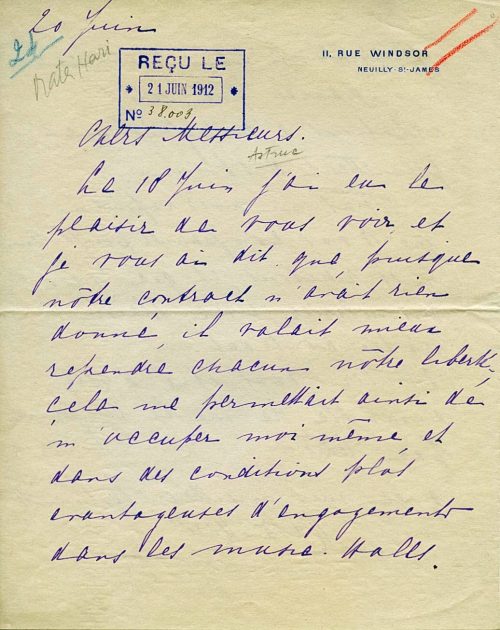 20 Juin
Mata Hari
11, RUE WINDSOR
NEUILLY-ST-JAMES
REÇU LE
21 JUIN 1912
No 38.003
Chers Messieurs.
Astruc
Le 18 Juin j'ai eu le
plaisir de vous voir et
je vous ai dit que puisque
nôtre contract n'avait rien
donné, il valait mieux
reprendre chacun nôtre liberté,
cela me permettait ainsi de
m'occuper moi même et
dans des conditions plus
avantageuses d'engagements
dans les music-Halls.